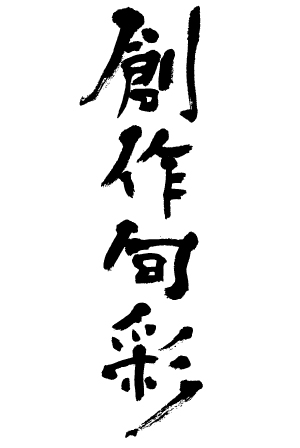 創作旬彩